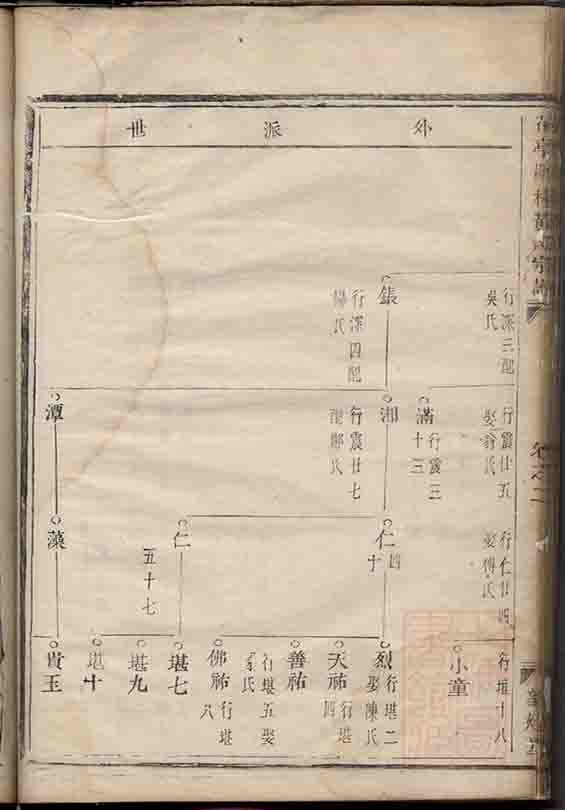 外派世
行深三配
吳氏
鋹
行深四配
楊氏
行震廿五
娶許氏
滿
行震三
十三
湘
行震廿七
潭
行仁廿四
娶傅氏
仁
四
十
仁
五十七
藻
行堪十八
小童
烈
行堪二
娶陳氏
天祐
行堪
四
善祐
行堪五娶
氏
佛祐
行堪
八
堪七
堪九
堪十
貴玉